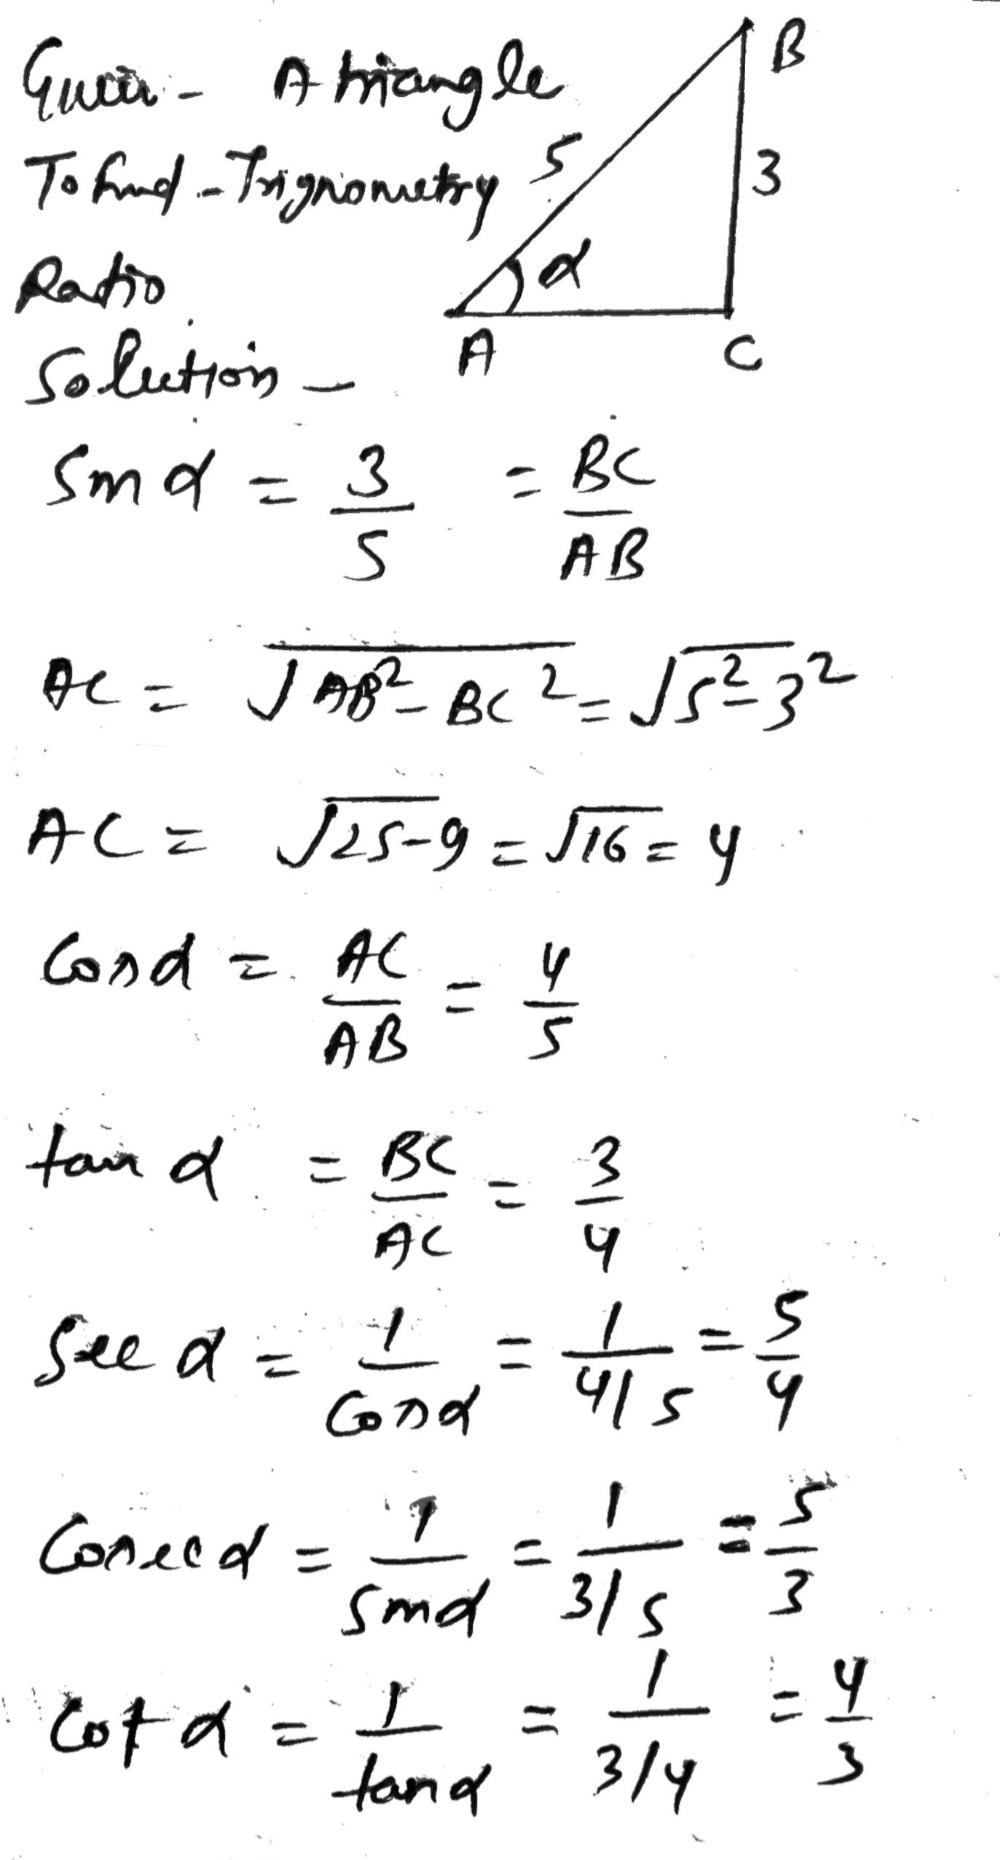 Given - A triangle
To find - Trignometry
Ratio
Solution -
B
5
3
α
A
C
Sin α = 3/5 = BC/AB
AC = √AB² - BC² = √5² - 3²
AC = √25-9 = √16 = 4
Cos α = AC/AB = 4/5
tan α = BC/AC = 3/4
Sec α = 1/Cos α = 1/4/5 = 5/4
Cosec α = 1/Sin α = 1/3/5 = 5/3
Cot α = 1/tan α = 1/3/4 = 4/3